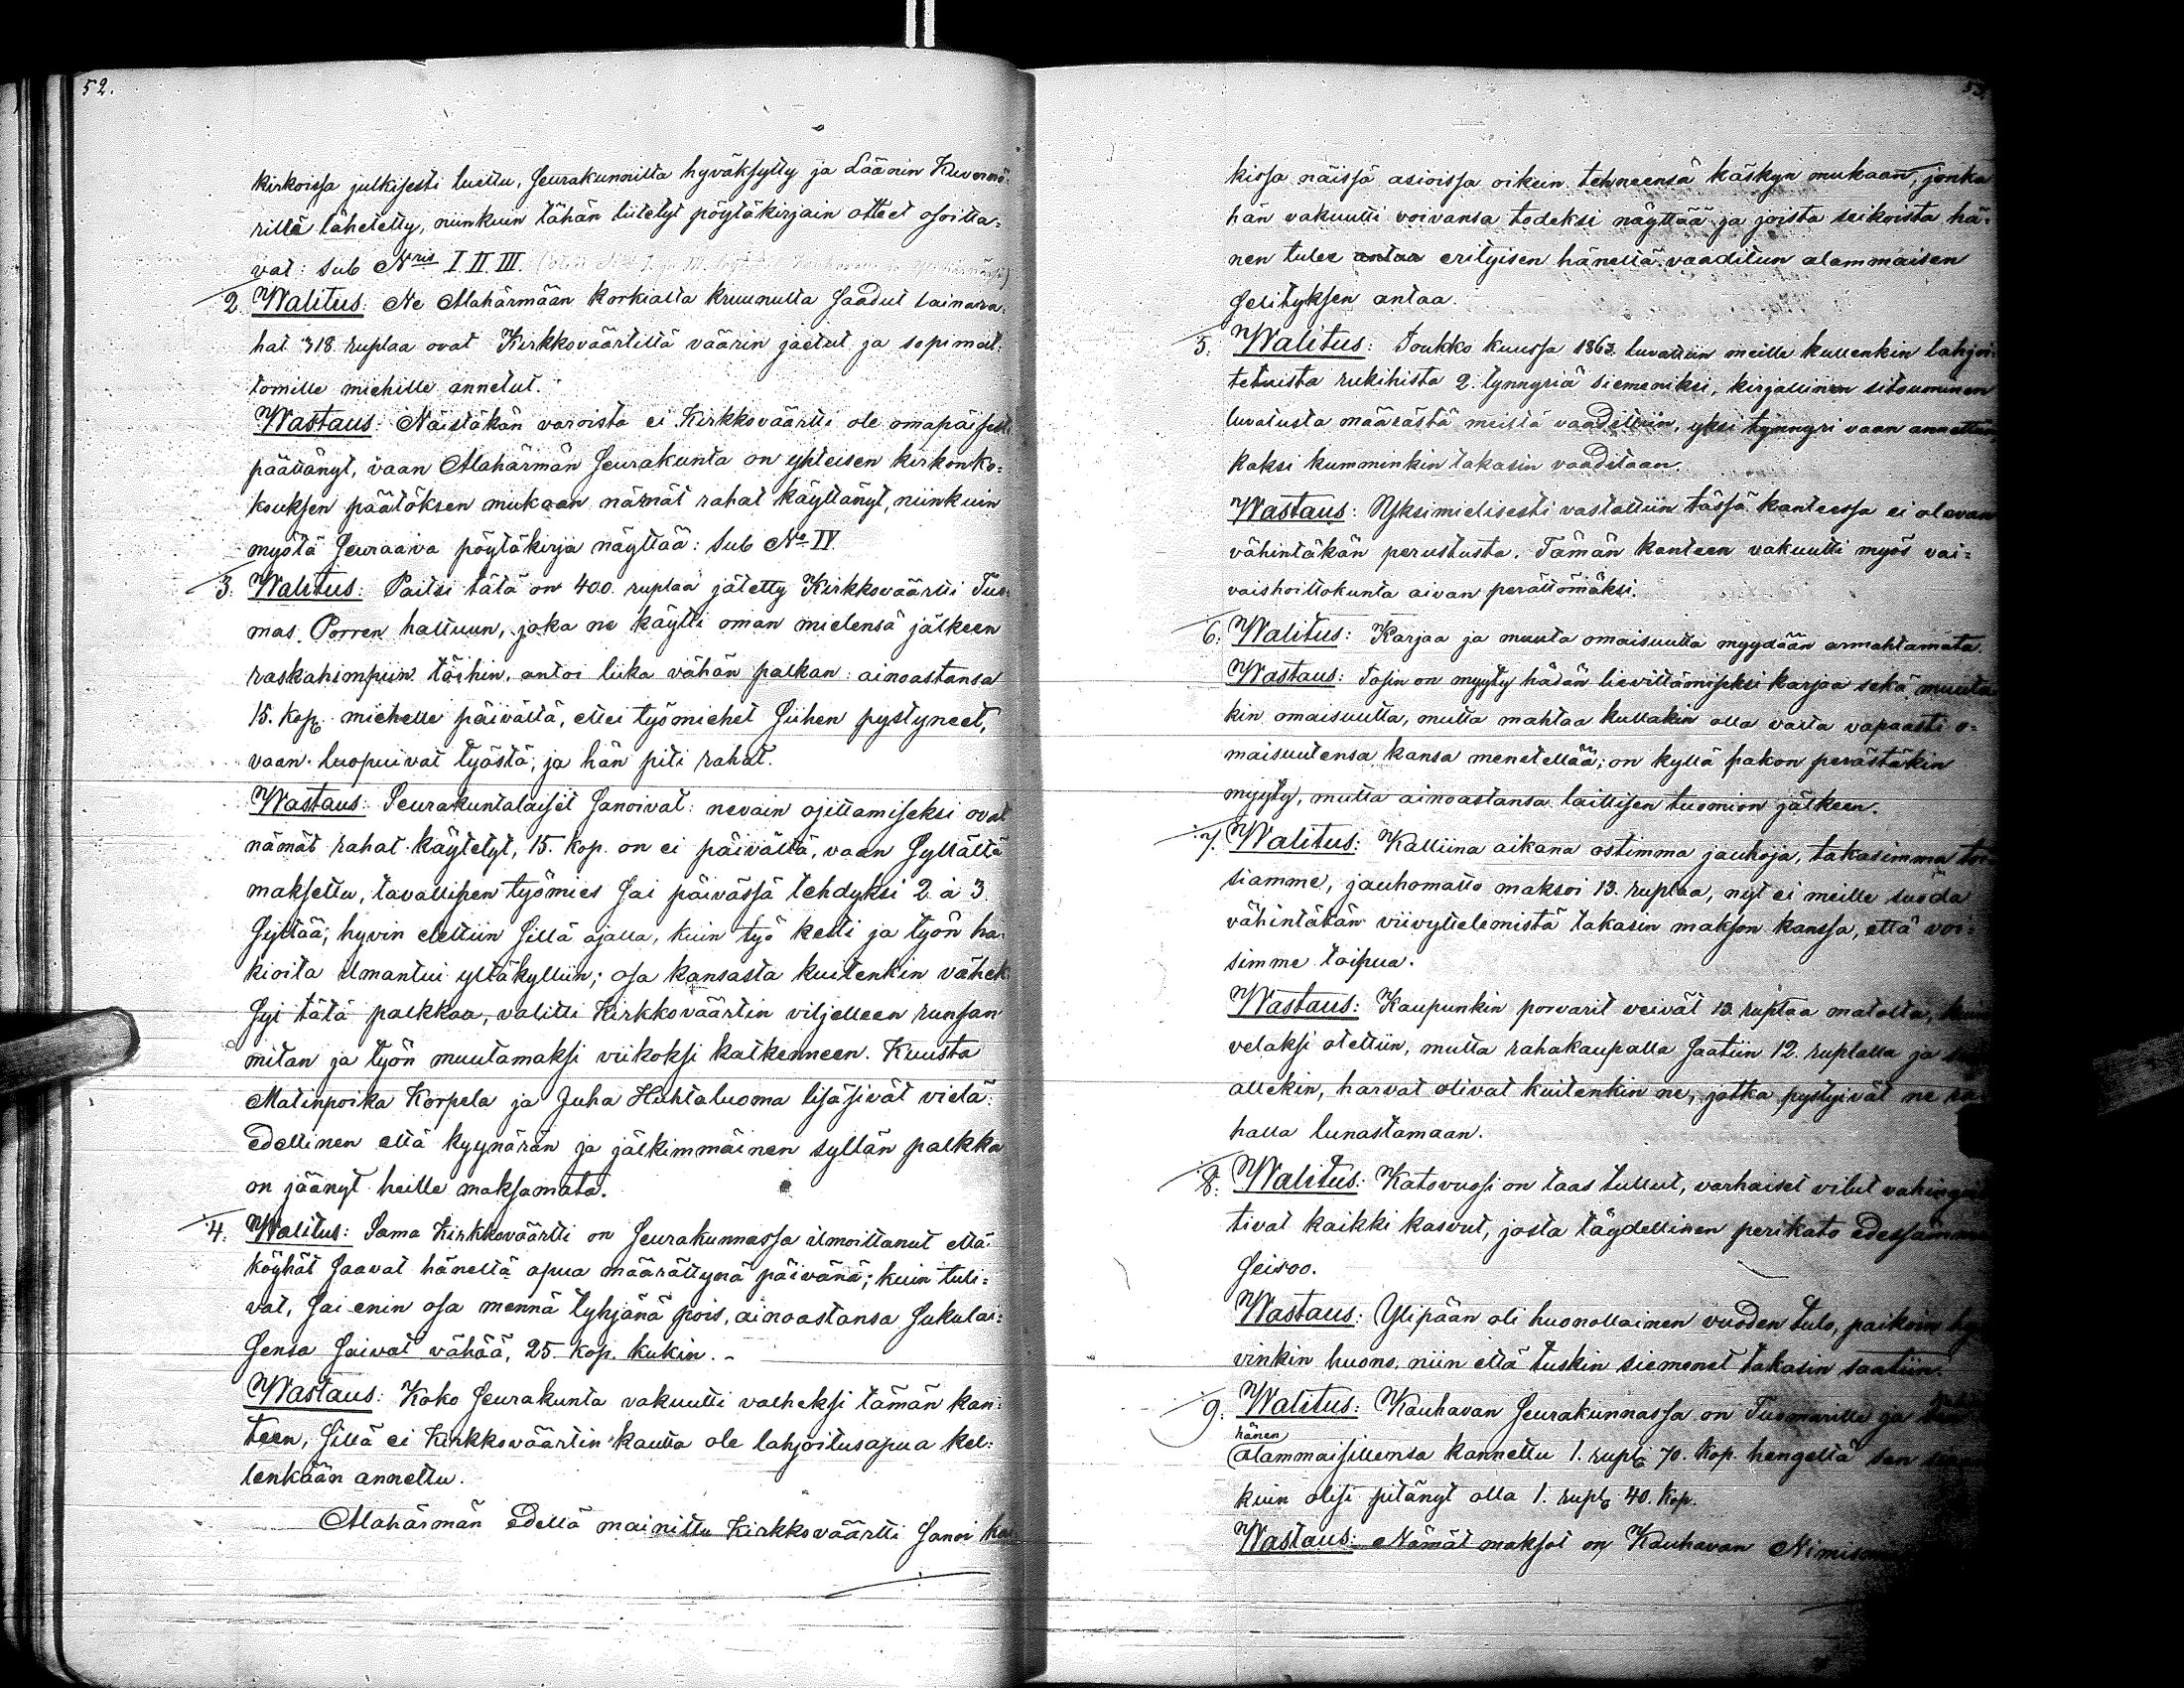 52.
kirkoissa julkisesti luettu, Seurakunnilta hyväksytty ja Läänin Kuvernö=
rille lähetetty, niinkuin tähän liitetyt pöytäkirjain otteet osoitta=
vat: sub Nris I. II. III.
2. Walitus: Ne Alahärmään korkialta kruunulta saadut lainara=
hat 318. ruplaa ovat Kirkkoväärtiltä väärin jaetut ja sopimat=
tomille miehille annetut.
Wastaus: Näistäkän varoista ei Kirkkoväärtti ole omapäisesti
päättänyt, vaan Alahärmän Seurakunta on yhteisen kirkonko=
kouksen päätöksen mukaan nämät rahat käyttänyt, niinkuin
myötä Seuraava pöytäkirja näyttää: sub No IV.
3. Walitus: Paitsi tätä on 400. ruplaa jätetty Kirkkoväärtti Tuo=
mas Porren haltuun, joka ne käytti oman mielensä jälkeen
raskahimpiin töihin, antoi lika vähän palkan: ainoastansa
15. kop. miehelle päivältä, ettei työmiehet siihen pystyneet,
vaan luopuivat työstä; ja hän piti rahat.
Wastaus: Seurakuntalaiset sanoivat: nevain ojittamiseksi ovat
nämät rahat käytetyt, 15. kop. on ei päivältä, vaan syllältä
maksettu, tavallisen työmies sai päivässä tehdyksi 2. à 3.
syltää; hyvin elettiin sillä ajalla, kuin työ kesti ja työn ha=
kioita ilmantui yltäkylliin; osa kansasta kuitenkin vähek=
syi tätä palkkaa, valitti Kirkkoväärtin viljelleen runsan
mitan ja työn muutamaksi viikoksi katkenneen. Kuusta
Matinpoika Korpela ja Juha Huhtaluoma lisäsivät vielä:
edellinen että kyynärän ja jälkimmäinen syltän palkka
on jäänyt heille maksamata.
4. Walitus: Sama Kirkkoväärtti on Seurakunnassa ilmoittanut että
köyhät saavat häneltä apua määrättynä päivänä; kuin tuli=
vat, sai enin osa mennä tyhjänä pois, ainoastansa sukulai=
sensa saivat vähää, 25. kop. kukin. -
Wastaus: Koko Seurakunta vakuutti valheksi tämän kan=
teen, sillä ei Kirkkoväärtin kautta ole lahjoitusapua kel=
lenkään annettu.
Alahärmän edellä mainittu Kirkkoväärtti sanoi
kissa näissä asioissa oikein tehneensä käskyn mukaan, jonka
hän vakuutti voivansa todeksi näyttää ja joista seikoista hä=
nen tulee antaa erityisen häneltä vaaditun alammaisen
selityksen antaa.
5. Walitus: Toukko kuussa 1863. luvattiin meille kullenkin lahjoi=
tetuista rukihista 2. tynnyriä siemeniksi, kirjallinen sitouminen
luvatusta määrästä meiltä vaadittiin, yksi tynnyri vaan annettiin
kaksi kumminkin takasin vaaditaan.
Wastaus: Yksimielisesti vastattiin tässä kanteessa ei olevan
vähintäkän perustusta. Tämän kanteen vakuutti myös vai=
vaishoittokunta aivan perättömäksi.
6. Walitus: Karjaa ja muuta omaisuutta myydään armahtamata.
Wastaus: Tosin on myyty hädän lievittämiseksi karjaa sekä muuta
kin omaisuutta, mutta mahtaa kullakin olla valta vapaasti o=
maisuutensa kansa menetellää; on kyllä pakon perästäkin
myyty, mutta ainoastansa laillisen tuomion jälkeen.
7. Walitus: Kalliina aikana ostimma jauhoja, takasimma
siamme, jauhomatto maksoi 13. ruplaa, nyt ei meille suoda
vähintäkän viivyttelemistä takasin makson kanssa, että voi=
simme toipua.
Wastaus: Kaupunkin porvarit veivät 13. ruplaa matolta,
velaksi otettiin, mutta rahakaupalla saatiin 12. ruplalla ja
allekin, harvat olivat kuitenkin ne, jotka pystyivät ne ra=
halla lunastamaan.
8. Walitus: Katovuosi on taas tullut, varhaiset vilut
tivat kaikki kasvut, josta täydellinen perikato edessämme
seisoo.
Wastaus: Ylipään oli huonollainen vuoden tulo, paikoin hy=
vinkin huono, niin että tuskin siemenet takasin saatiin.
9. Walitus: Kauhavan Seurakunnassa on Tuomarille ja
hänen
alammaisillensa kannettu 1. rupl. 70. kop. hengeltä sen
kuin olisi pitänyt olla 1. rupl. 40. kop.
Wastaus: Nämät maksot on Kauhavan